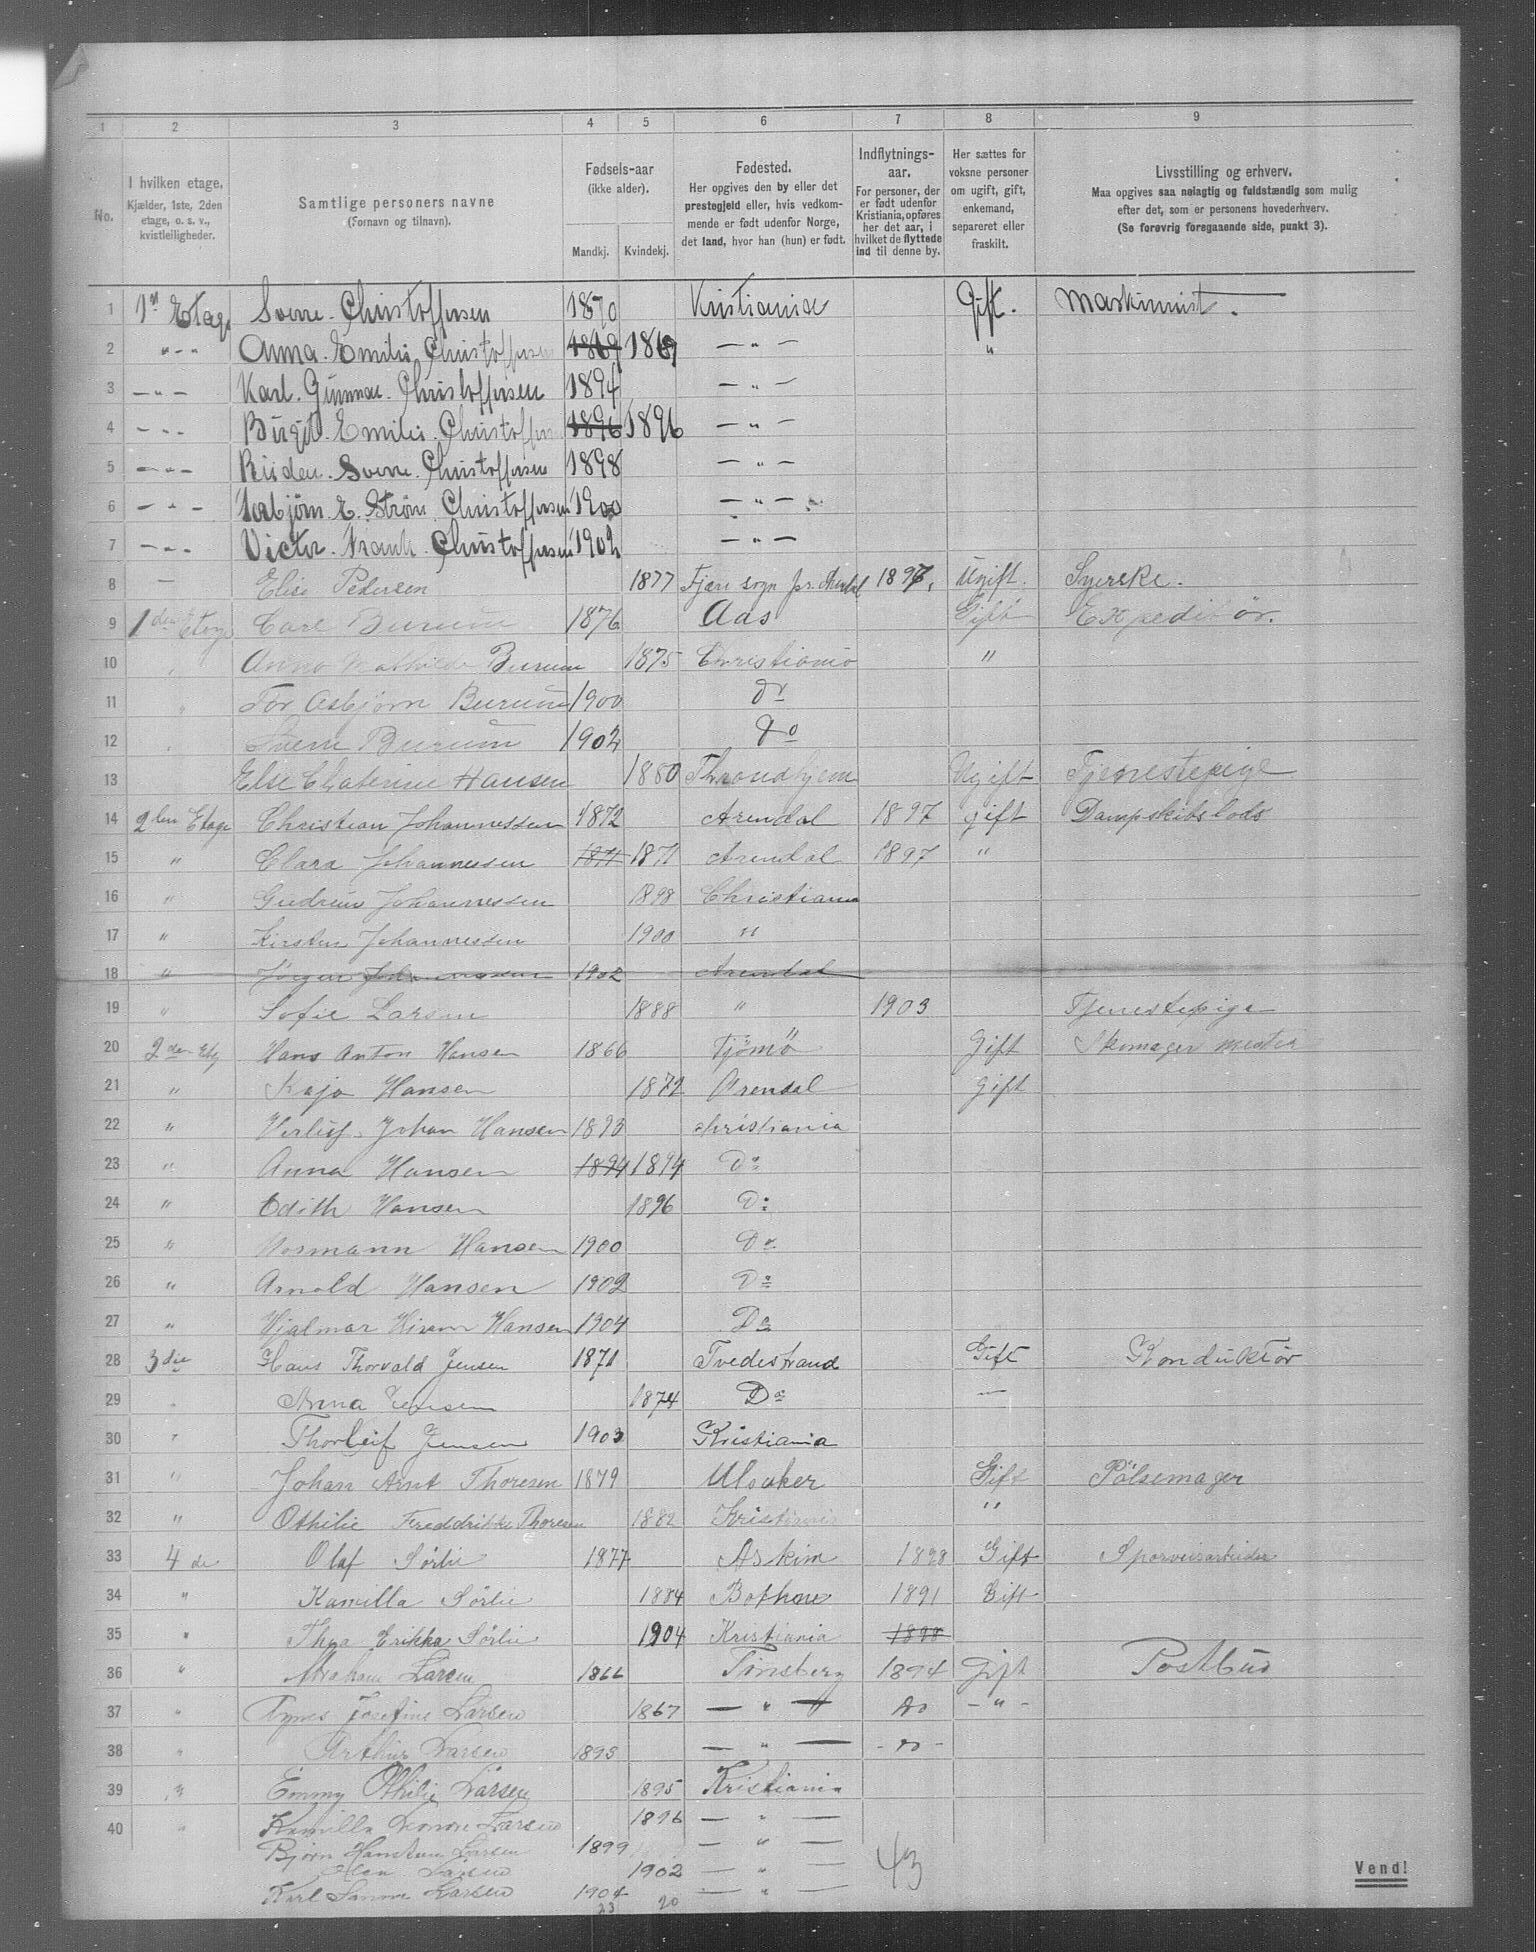 1 2 3 4 5 6 7 8 9
No.
I hvilken etage.
Kjælder, 1ste, 2den
etage, o. s. v.,
kvistleiligheder.
Samtlige personers navne
(Fornavn og tilnavn).
Fødsels-aar
(ikke alder).
Mandkj. Kvindekj.
Fødested.
Her opgives den by eller det
prestegjeld eller, hvis vedkom-
mende er født udenfor Norge,
det land, hvor han (hun) er født.
Indflytnings-
aar.
For personer, der
er født udenfor
Kristiania, opføres
her det aar, i
hvilket de flyttede
ind til denne by.
Her sættes for
voksne personer
om ugift, gift,
enkemand,
separeret eller
fraskilt.
Livsstilling og erhverv.
Maa opgives saa nøiagtig og fuldstændig som mulig
efter det, som er personens hovederhverv.
(Se forøvrig foregaaende side, punkt 3).
1 1st Etage Sverre Christoffersen 1870 Kristiania Gift. Maskinist.
2 " Anna Emilie Christoffersen 1869 1869 — " — "
3 — " — Karl Gunnar Christoffersen 1894 — " —
4 — " — Birgit Emilie Christoffersen 1896 1896 — " —
5 — " — Sverre Christoffersen 1898 — " —
6 — " — E. Strøm Christoffersen 1900 — " —
7 — " — Victor Frank Christoffersen 1902 — " —
8 — Elise Pedersen 1877 Fjære sogn pr. Arendal 1897. Ugift. Syerske.
9 1den Etage Carl Burum 1876 Aas Gift Expeditør.
10 " Anna Mathilde Burum 1875 Christiania "
11 " Tor Asbjørn Burum 1900 do
12 " Burum 1902 do
13 Else Chaterine Hansen 1880 Throndhjem Ugift Tjenestepige
14 2den Etage Christian Johannessen 1872 Arendal 1897 gift Dampskibslods
15 " Clara Johannessen 1871 1871 Arendal 1897 "
16 " Gudrun Johannessen 1898 Christiania
17 " Kirsten Johannessen 1900 "
18 " Jørgen Johannessen 1902 Arendal
19 " Sofie Larsen 1888 " 1903 Tjenestepige
20 2den Etg Hans Anton Hansen 1866 Tjømø Gift Skomager mester
21 " Kaja Hansen 1872 Arendal gift
22 " Johan Hansen 1893 christiania
23 " Anna Hansen 1894 1894 Do
24 " Edith Hansen 1896 Do
25 " Hansen 1900 Do
26 " Arnold Hansen 1902 Do
27 " Hjalmar Hansen 1904 Do
28 3die Hans Thorvald Jensen 1871 Tvedestrand Gift Konduktør
29 " Anna Jensen 1874 Do —
30 " Thorleif Jensen 1903 Kristiania
31 " Johan Arnt Thoresen 1879 Ulsaker Gift Pølsemager
32 " Othilie Freddrikke Thoresen 1882 Kristiania "
33 4de Olaf Sørlie 1877 Askim 1898 Gift Sporveisarbeider
34 " Kamilla Sørlie 1884 1891 Gift
35 " Thea Erikka Sørlie 1904 Kristiania 1898
36 " Abraham Larsen 1866 Tønsberg 1894 gift Postbud
37 " Agnes Josefine Larsen 1867 — " — do — " —
38 " Arthur Larsen 1893 — " — - do -
39 " Emmy Othilie Larsen 1895 Kristiania
40 " Kamilla Larsen 1896 — " —
Bjørn Larsen 1899 — " —
Larsen 1902 — " — 43
Karl Larsen 1904 — " —
23 20
Vend!